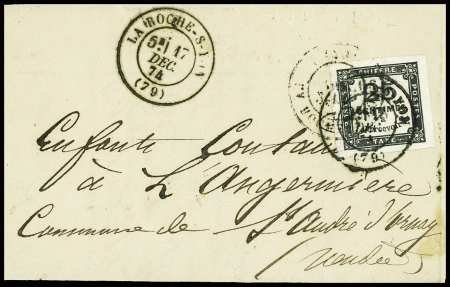 LA ROCHE-S-YON
5E/ 17
DEC.
74
(79)
CHIFFRE
POSTES
25
CENTIMES
à percevoir
TAXE
(79)
Enfants
à L'Angermière
Commune de St André d'Ornay
(Vendée)